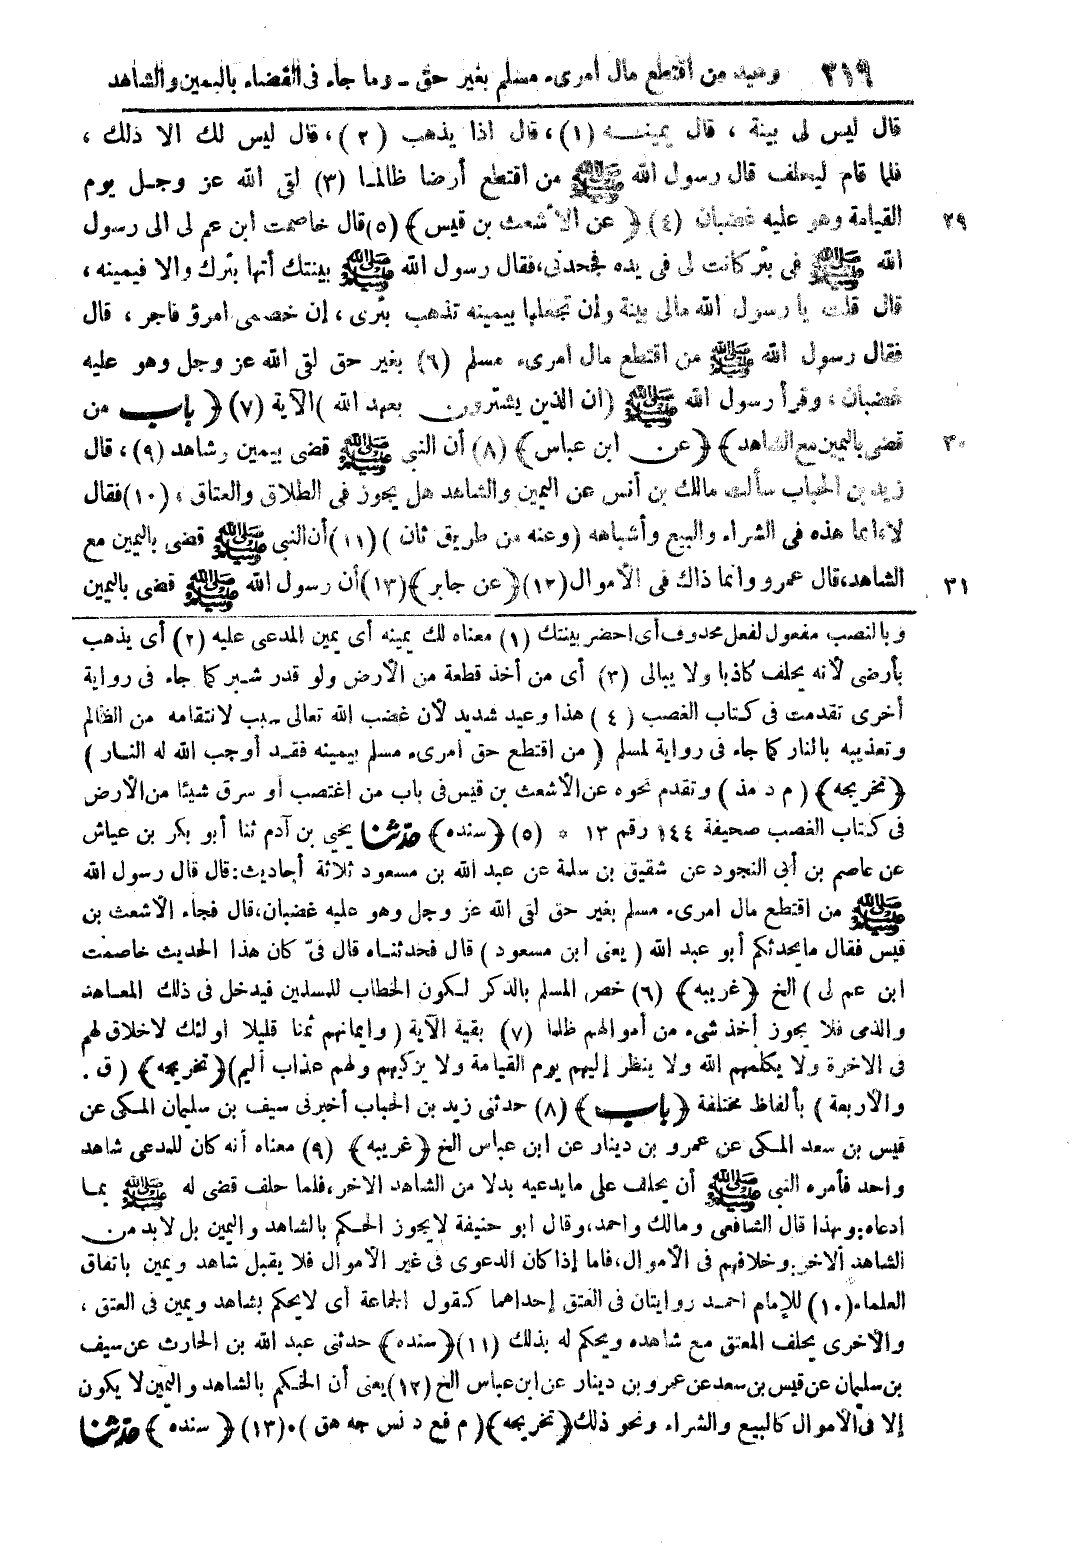 ٢١٩ وعيد من اقتطع مال أمرىء مسلم بغير حق ــ وما جاء فى القضاء باليمين والشاهد
قال ليس لى بينة ، قال يمينـــه (١)، قال اذا يذهب (٢)، قال ليس لك الا ذلك ،
فلما قام ليحلف قال رسول الله ﷺ من اقتطع أرضا ظالمـا (٣) لقى الله عز وجـل يوم
٢٩ القيامة وهو عليه غضبان (٤) ﴿ عن الأشعث بن قيس ﴾ (٥) قال خاصمت ابن عم لى الى رسول
الله ﷺ فى بئر كانت لى فى يده فجحدنى، فقال رسول الله ﷺ بينتك أنها بئرك والا فيمينه ،
قال قلت يا رسول الله مالى بينة وإن تجعلها بيمينه تذهب بئرى ، إن خصمى امرؤ فاجر ، قال
فقال رسول الله ﷺ من اقتطع مال امرىء مسلم (٦) بغير حق لقى الله عز وجل وهو عليه
غضبان ، وقرأ رسول الله ﷺ (ان الذين يشترون بعهد الله ) الآية (٧) ﴿ باب من
٣٠ قضى باليمين مع الشاهد ﴾ ﴿ عن ابن عباس ﴾ (٨) أن النبى ﷺ قضى بيمين وشاهد (٩)، قال
زيد بن الحباب سألت مالك بن أنس عن اليمين والشاهد هل يجوز فى الطلاق والعتاق ، (١٠) فقال
لا، انما هذه فى الشراء والبيع وأشباهه (وعنه من طريق ثان ) (١١) أن النبى ﷺ قضى باليمين مع
٣١ الشاهد، قال عمرو وانما ذاك فى الأموال (١٢) ﴿ عن جابر ﴾ (١٣) أن رسول الله ﷺ قضى باليمين
وبالنصب مفعول لفعل محذوف أى احضر بينتك (١) معناه لك يمينه أى يمين المدعى عليه (٢) أى يذهب
بأرضى لأنه يحلف كاذبا ولا يبالى (٣) أى من أخذ قطعة من الأرض ولو قدر شبر كما جاء فى رواية
أخرى تقدمت فى كتاب الغصب (٤) هذا وعيد شديد لأن غضب الله تعالى سبب لانتقامه من الظالم
وتعذيبه بالنار كما جاء فى رواية لمسلم ( من اقتطع حق امرىء مسلم بيمينه فقـد أوجب الله له النـار )
﴿ تخريجه ﴾ ( م د مذ ) وتقدم نحوه عن الأشعث بن قيس فى باب من اغتصب أو سرق شيئا من الأرض
فى كتاب الغصب صحيفة ١٤٤ رقم ١٣ * (٥) ﴿ سنده ﴾ حدثنا يحيى بن آدم ثنا أبو بكر بن عياش
عن عاصم بن أبى النجود عن شقيق بن سلمة عن عبد الله بن مسعود ثلاثة أحاديث: قال قال رسول الله
ﷺ من اقتطع مال امرىء مسلم بغير حق لقى الله عز وجل وهو عليه غضبان، قال فجاء الأشعث بن
قيس فقال مايحدثكم أبو عبد الله ( يعنى ابن مسعود ) قال فحدثنـاه قال فىّ كان هذا الحديث خاصمت
ابن عم لى ) الخ ﴿ غريبه ﴾ (٦) خص المسلم بالذكر لـكون الخطاب للمسلمين فيدخل فى ذلك المعـاهد
والذمى فلا يجوز أخذ شىء من أموالهم ظلما (٧) بقية الآية ( وايمانهم ثمنا قليلا اولئك لاخلاق لهم
فى الاخرة ولا يكلمهم الله ولا ينظر إليهم يوم القيامة ولا يزكيهم ولهم عذاب أليم) ﴿ تخريجه ﴾ ( ق .
والأربعة ) بألفاظ مختلفة ﴿ باب ﴾ (٨) حدثنى زيد بن الحباب أخبرنى سيف بن سليمان المـكى عن
قيس بن سعد المـكى عن عمرو بن دينار عن ابن عباس الخ ﴿ غريبه ﴾ (٩) معناه أنه كان للمدعى شاهد
واحد فأمره النبى ﷺ أن يحلف على مايدعيه بدلا من الشاهد الاخر، فلما حلف قضى له ﷺ بمـا
ادعاه: وبهذا قال الشافعى ومالك واحمد، وقال ابو حنيفة لايجوز الحـكم بالشاهد واليمين بل لابد من
الشاهد الاخر: وخلافهم فى الأموال، فاما إذا كان الدعوى فى غير الأموال فلا يقبل شاهد ويمين باتفاق
العلماء (١٠) للإمام احمـد روايتان فى العتق إحداهما كـقول الجماعة أى لايحكم بشاهد ويمين فى العتق ،
والأخرى يحلف المعتق مع شاهده ويحكم له بذلك (١١) ﴿ سنده ﴾ حدثنى عبد الله بن الحارث عن سيف
بن سليمان عن قيس بن سعد عن عمرو بن دينار عن ابن عباس الخ (١٢) يعنى أن الحـكم بالشاهد واليمين لا يكون
إلا فى الأموال كالبيع والشراء ونحو ذلك ﴿ تخريجه ﴾ ( م فع د نس جه هق )٠ (١٣) ﴿ سنده ﴾ حدثنا